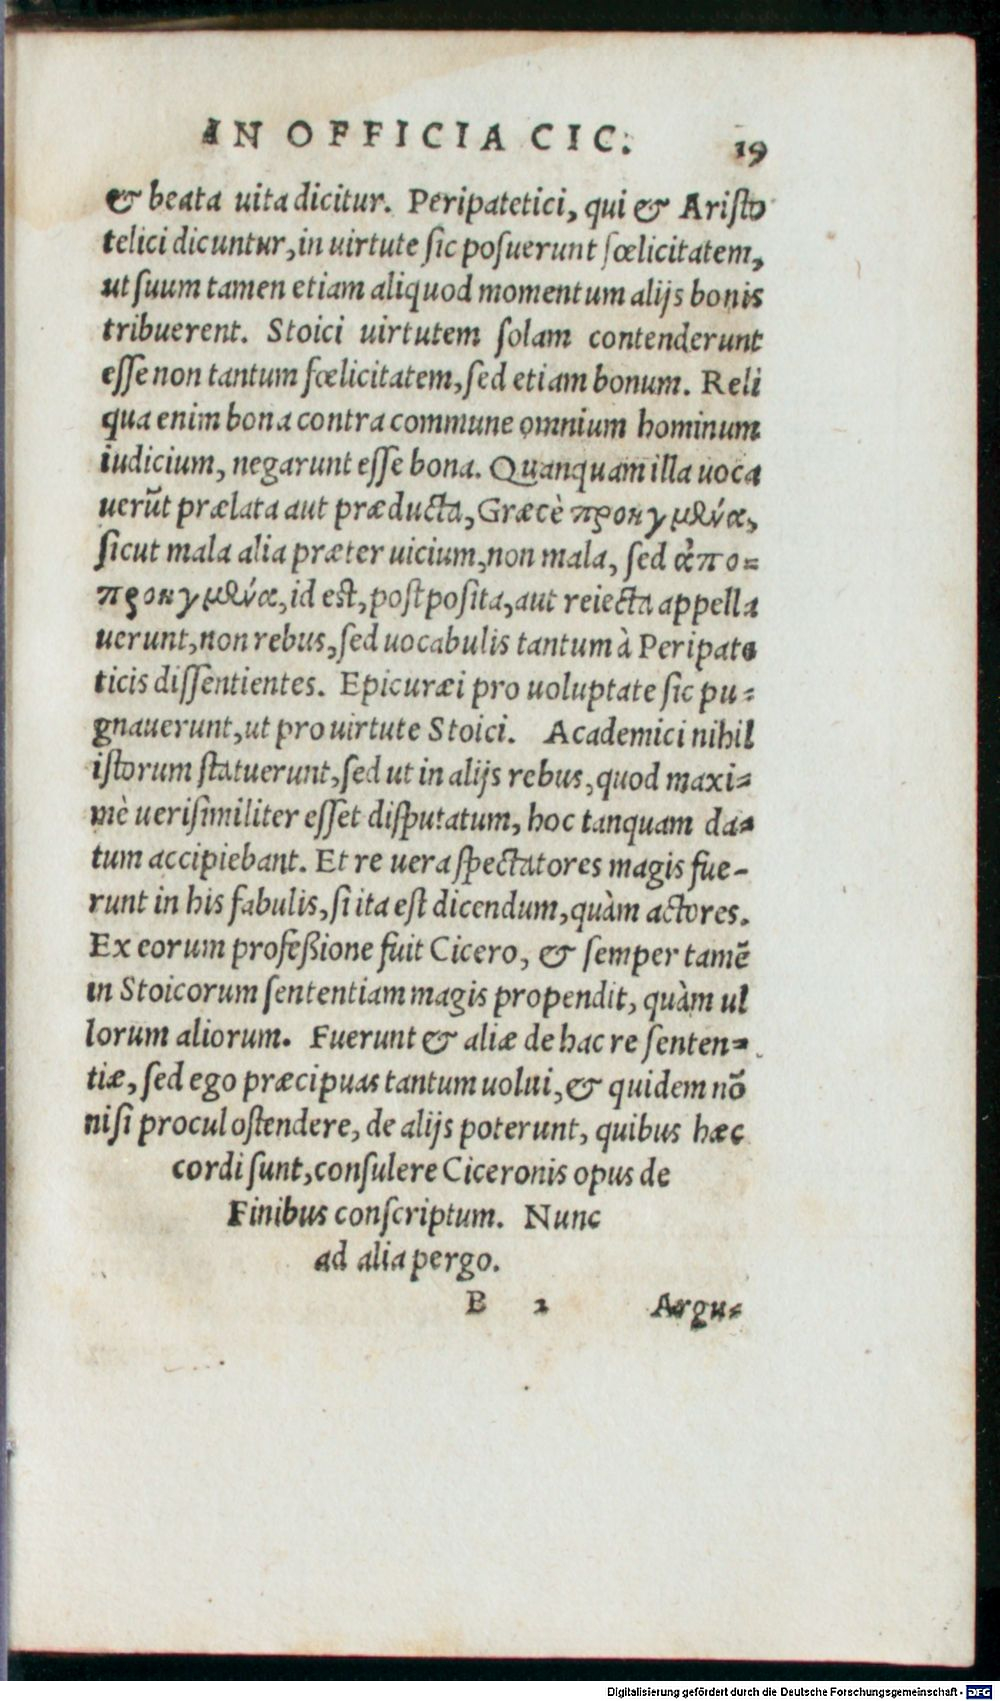 IN OFFICIA CIC. 19
& beata uita dicitur. Peripatetici, qui & Aristo
telici dicuntur, in uirtute sic posuerunt fœlicitatem,
ut suum tamen etiam aliquod momentum alijs bonis
tribuerent. Stoici uirtutem solam contenderunt
esse non tantum fœlicitatem, sed etiam bonum. Reli
qua enim bona contra commune omnium hominum
iudicium, negarunt esse bona. Quanquam illa uoca
uerūt prælata aut præducta, Græcè προηγμθνα,
sicut mala alia præter uicium, non mala, sed ἀπο=
προηγμθνα, id est, postposita, aut reiecta appella
uerunt, non rebus, sed uocabulis tantum à Peripate
ticis dissentientes. Epicuræi pro uoluptate sic pu=
gnauerunt, ut pro uirtute Stoici. Academici nihil
istorum statuerunt, sed ut in alijs rebus, quod maxi=
mè uerisimiliter esset disputatum, hoc tanquam da=
tum accipiebant. Et re uera spectatores magis fue-
runt in his fabulis, si ita est dicendum, quàm actores.
Ex eorum profeßione fuit Cicero, & semper tamē
in Stoicorum sententiam magis propendit, quàm ul
lorum aliorum. Fuerunt & aliæ de hac re senten=
tiæ, sed ego præcipuas tantum uolui, & quidem nō
nisi procul ostendere, de alijs poterunt, quibus hæc
cordi sunt, consulere Ciceronis opus de
Finibus conscriptum. Nunc
ad alia pergo.
B 2 Argu=
Digitalisierung gefördert durch die Deutsche Forschungsgemeinschaft - DFG